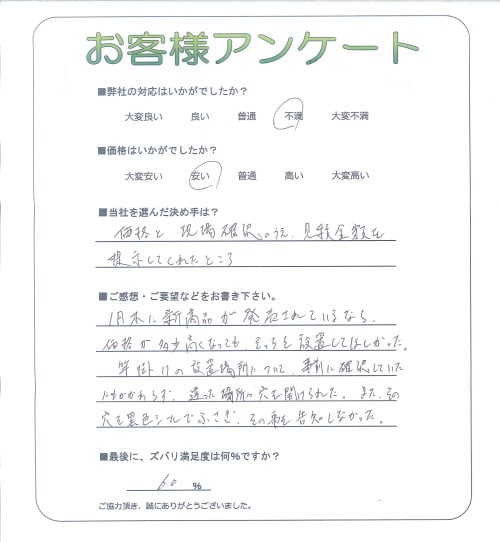 お客様アンケート
■弊社の対応はいかがでしたか？
大変良い 良い 普通 不満 大変不満
■価格はいかがでしたか？
大変安い 安い 普通 高い 大変高い
■当社を選んだ決め手は？
価格と現場確認のうえ、見積金額を
提示してくれたところ
■ご感想・ご要望などをお書き下さい。
1月末に新商品が発売されているなら、
価格が多少高くなっても、そっちを設置してほしかった。
竿掛けの設置場所について、事前に確認していた
にもかかわらず、違った場所に穴を開けられた。また、その
穴を黒色シールでふさぎ、その事を告知しなかった。
■最後に、ズバリ満足度は何%ですか？
60 %
ご協力頂き、誠にありがとうございました。